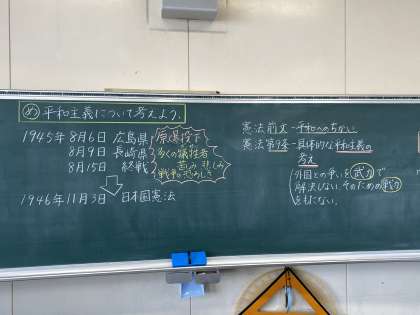 め 平和主義について考えよう。
1945年8月6日 広島県 原爆投下
8月9日 長崎県 多くの犠牲者
8月15日 終戦 苦しみ 悲しみ
戦争の恐ろしさ
1946年11月3日 日本国憲法
憲法前文-平和へのちかい
憲法第9条-具体的な平和主義の
考え
外国との争いを武力で
解決しない。そのための戦力
をもたない。